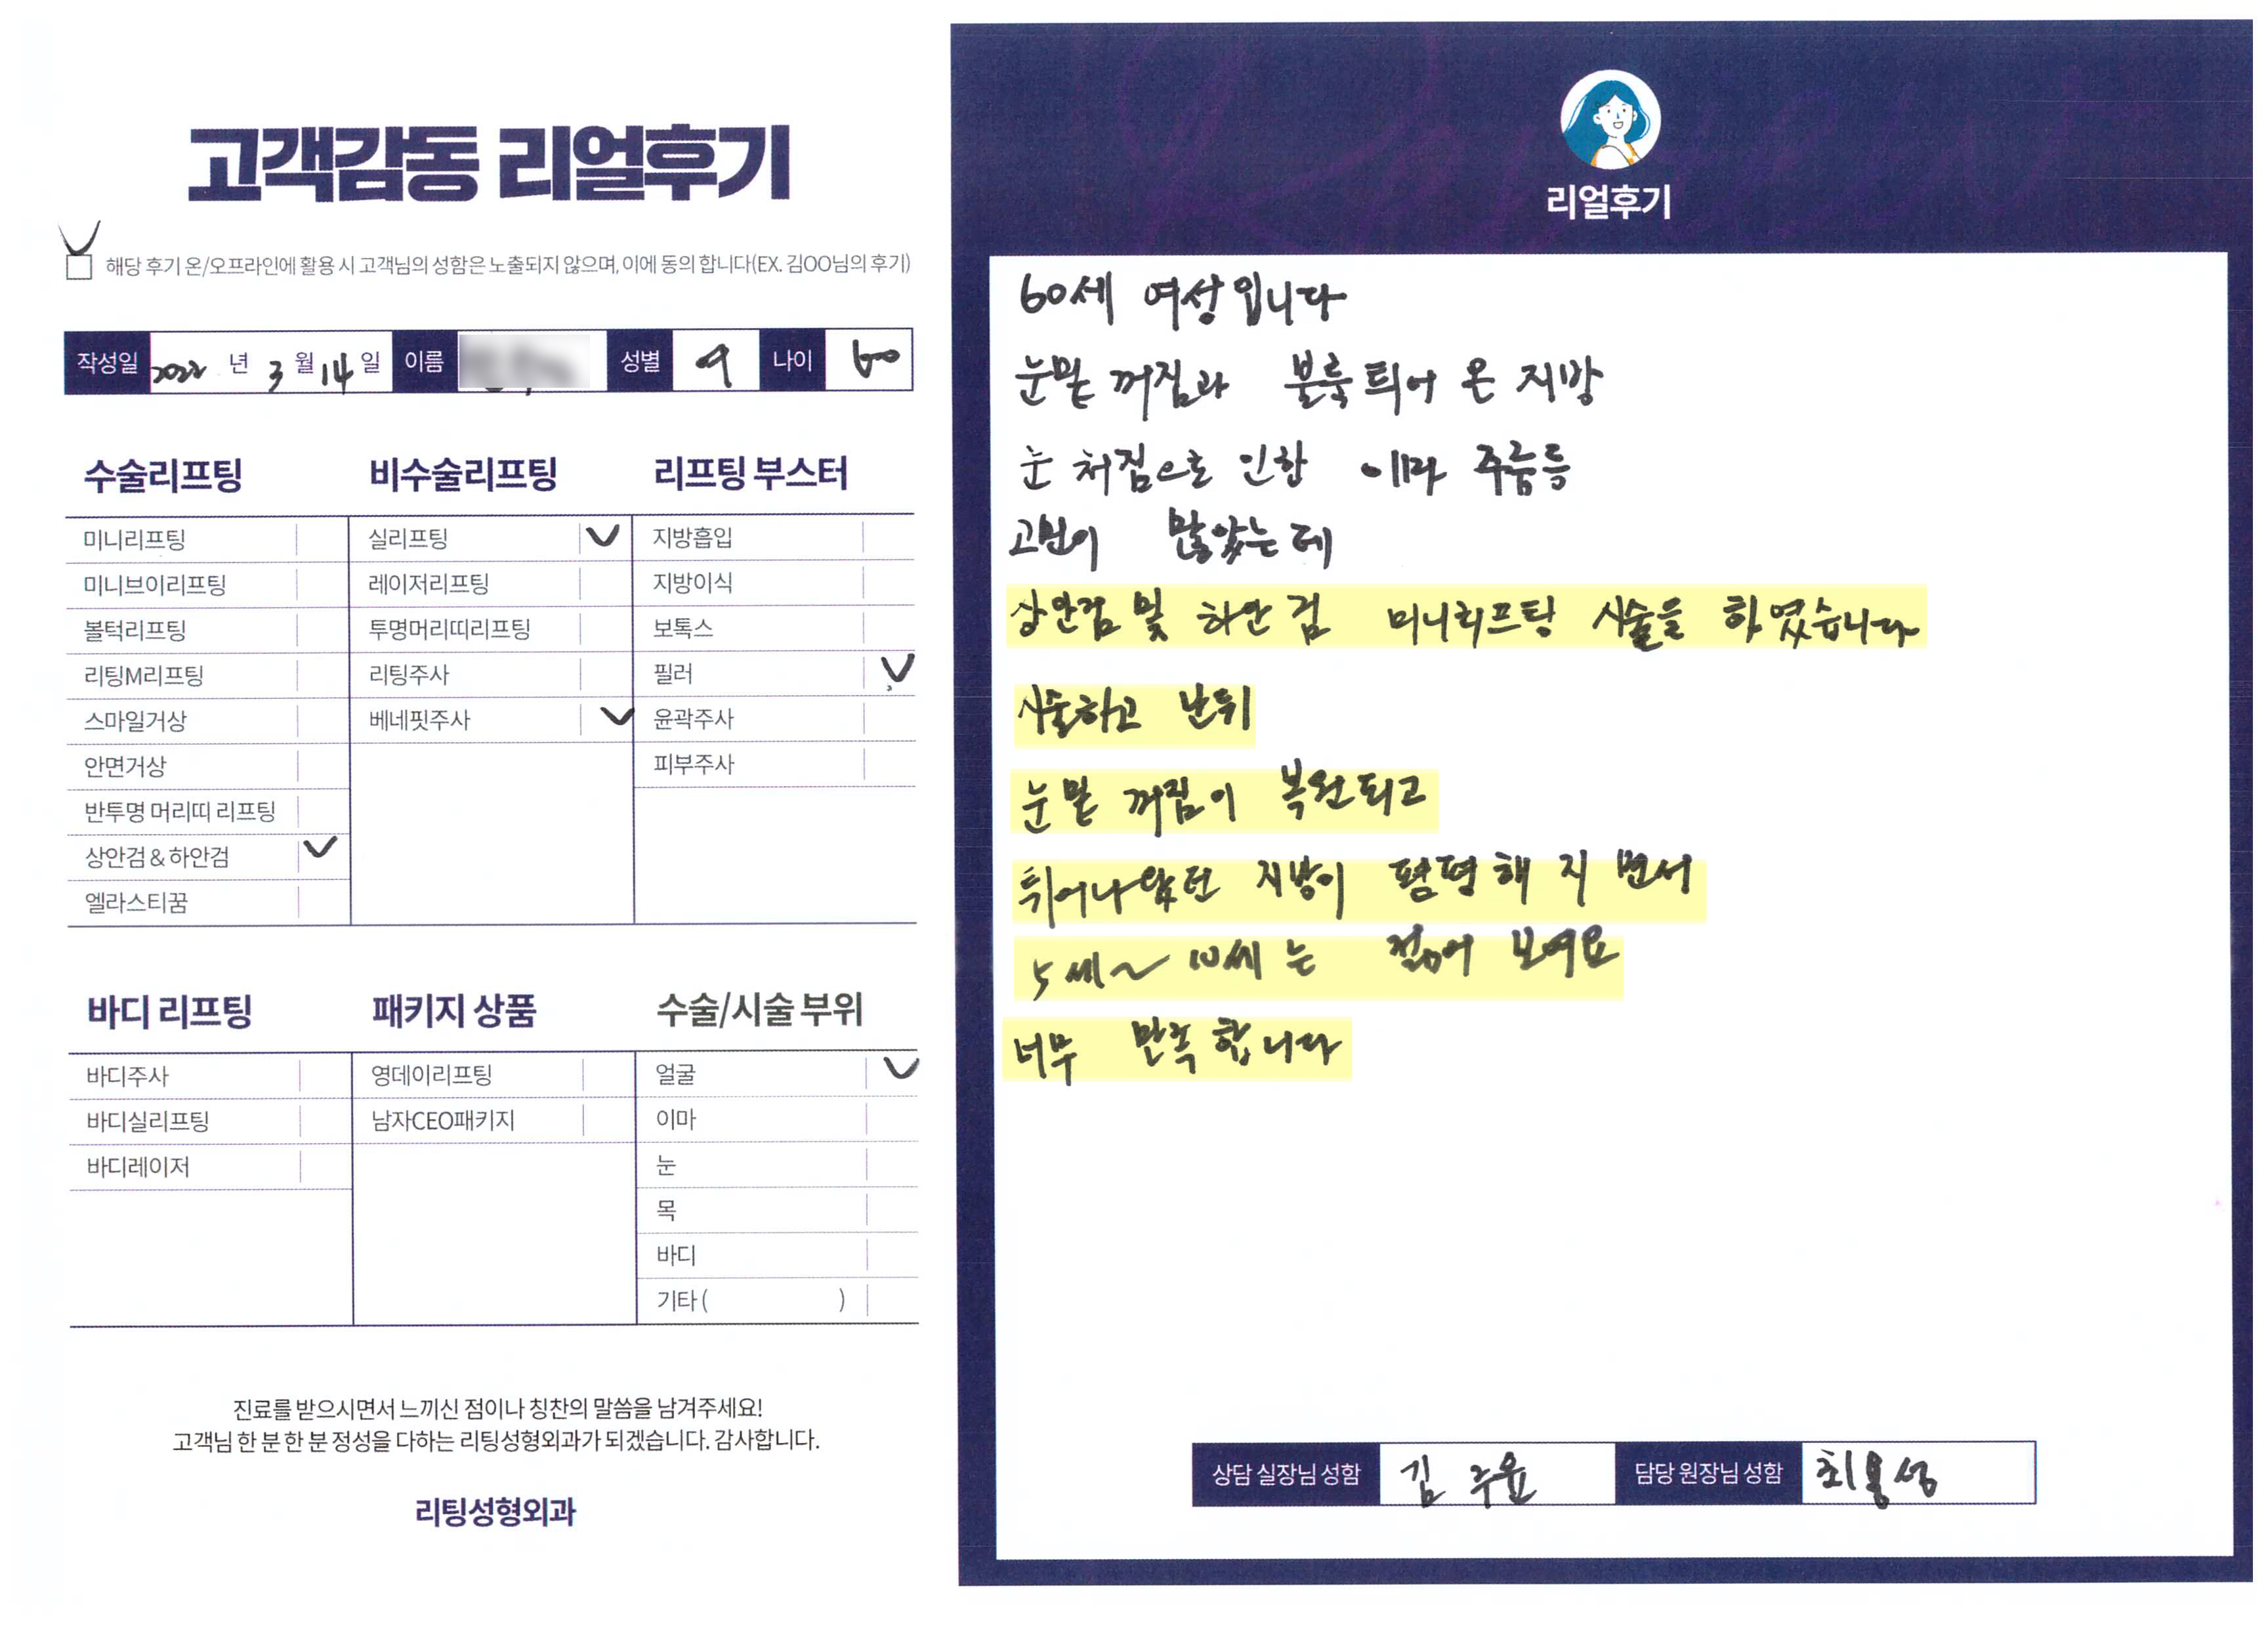 고객감동 리얼후기
해당 후기 온/오프라인에 활용 시 고객님의 성함은 노출되지 않으며, 이에 동의 합니다(EX. 김OO님의 후기)
작성일 2022 년 3 월 14 일 이름 성별 여 나이 60
수술리프팅 비수술리프팅 리프팅 부스터
미니리프팅 실리프팅 지방흡입
미니브이리프팅 레이저리프팅 지방이식
볼턱리프팅 투명머리띠리프팅 보톡스
리팅M리프팅 리팅주사 필러
스마일거상 베네핏주사 윤곽주사
안면거상 피부주사
반투명 머리띠 리프팅
상안검 & 하안검
엘라스티꿈
바디 리프팅 패키지 상품 수술/시술 부위
바디주사 영데이리프팅 얼굴
바디실리프팅 남자CEO패키지 이마
바디레이저 눈
목
바디
기타 ( )
진료를 받으시면서 느끼신 점이나 칭찬의 말씀을 남겨주세요!
고객님 한 분 한 분 정성을 다하는 리팅성형외과가 되겠습니다. 감사합니다.
리팅성형외과
리얼후기
60세 여성입니다
눈밑 꺼짐과 불룩튀어 온 지방
눈 처짐으로 인한 이마 주름등
고민이 많았는데
상안검 및 하안검 미니리프팅 시술을 하였습니다
시술하고 난뒤
눈밑 꺼짐이 복원되고
튀어나왔던 지방이 평평해 지면서
5세~10세는 젊어 보여요
너무 만족합니다
상담 실장님 성함 김주윤 담당 원장님 성함